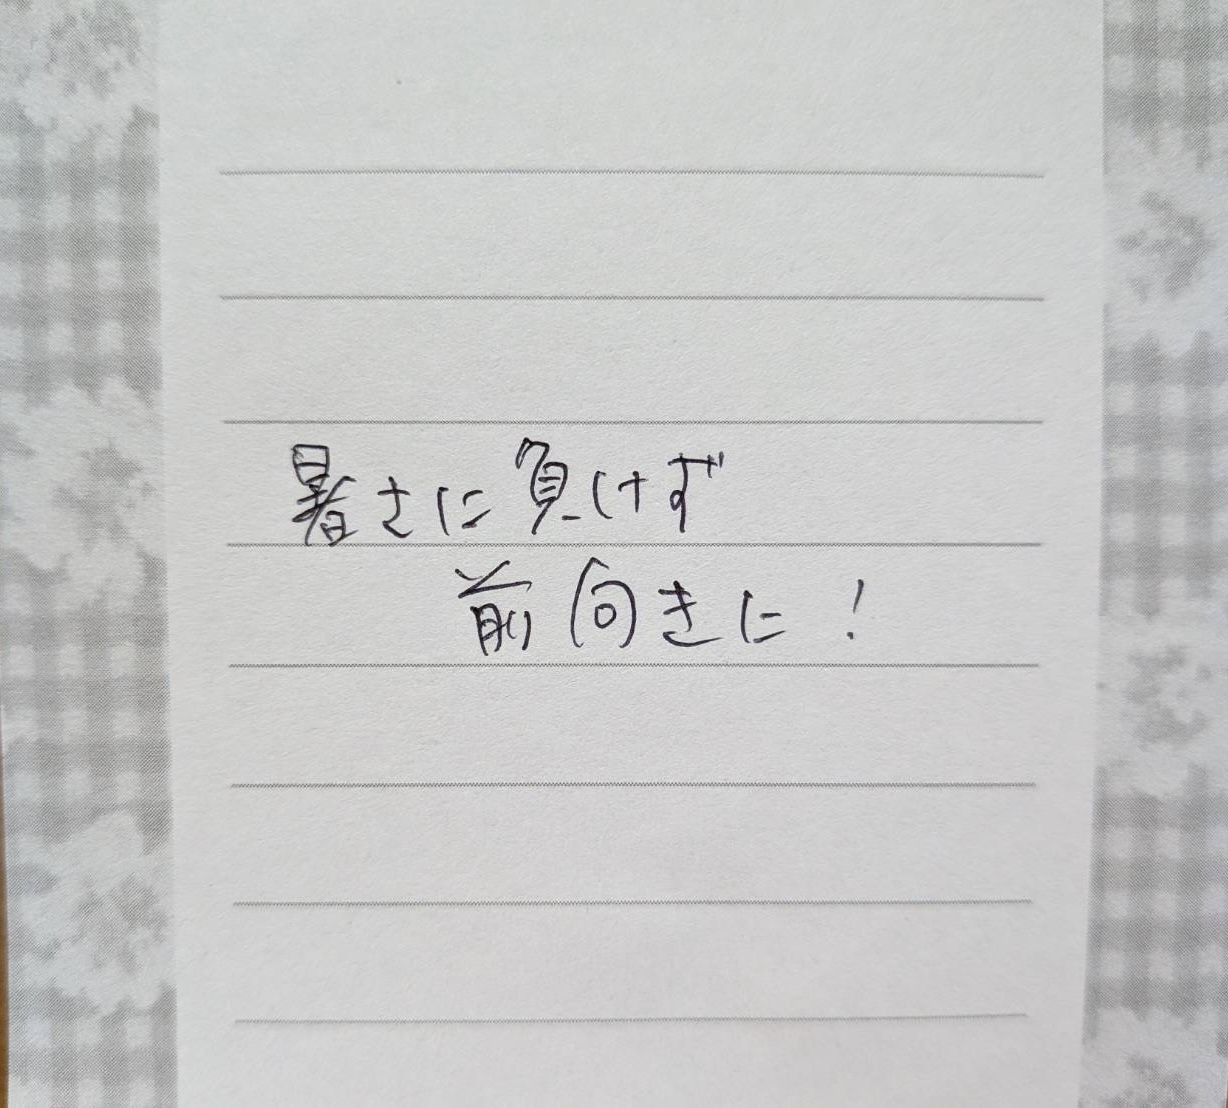 暑さに負けず
前向きに！